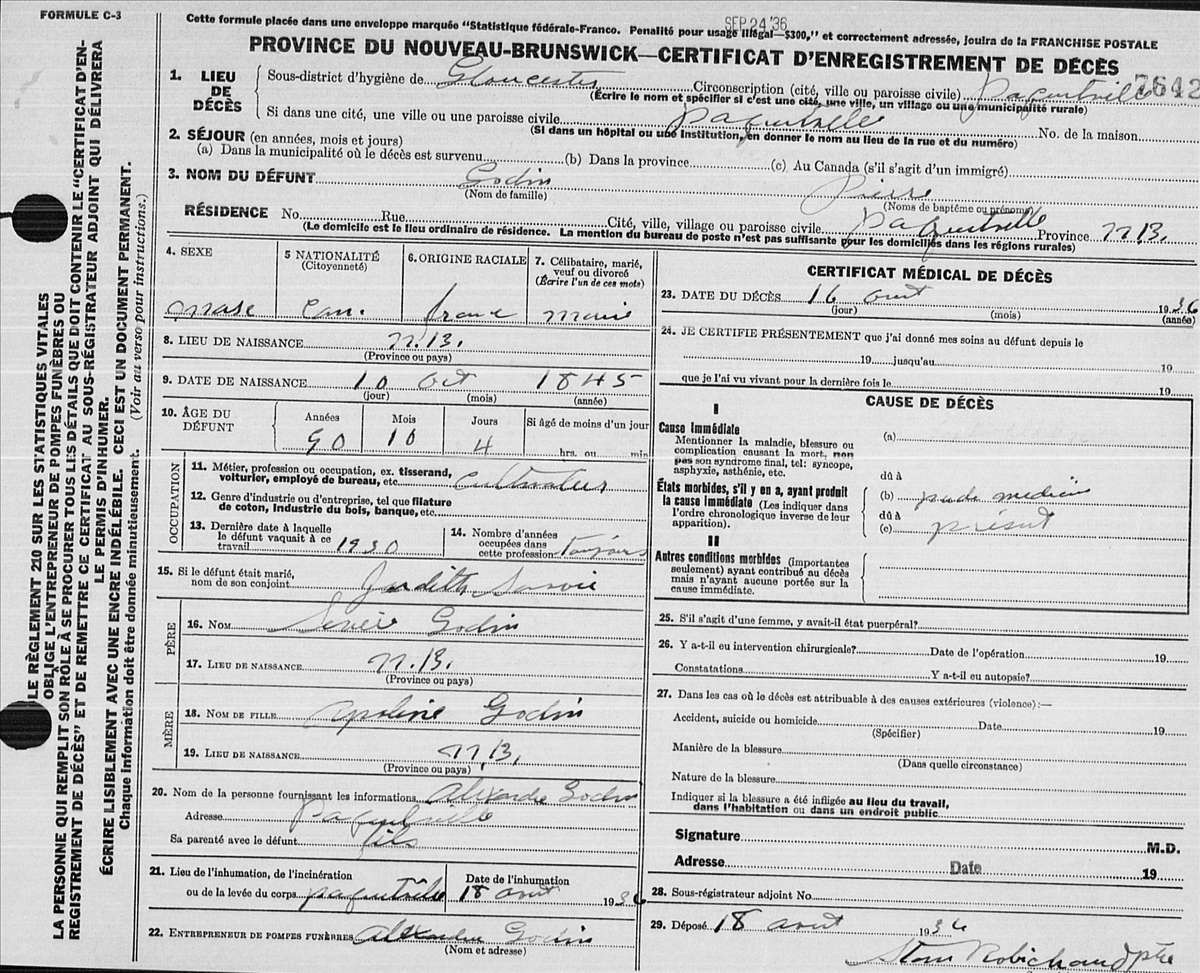 FORMULE C-3
Cette formule placée dans une enveloppe marquée "Statistique fédérale-Franco. Penalité pour usage illégal—$300," et correctement adressée, jouira de la FRANCHISE POSTALE
SEP 24 '36
PROVINCE DU NOUVEAU-BRUNSWICK—CERTIFICAT D'ENREGISTREMENT DE DÉCÈS
7642
1. LIEU DE DÉCÈS
Sous-district d'hygiène de Gloucester Circonscription (cité, ville ou paroisse civile) Paquetville
(Écrire le nom et spécifier si c'est une cité, une ville, un village ou une municipalité rurale)
Si dans une cité, une ville ou une paroisse civile Paquetville No. de la maison
(Si dans un hôpital ou une institution, en donner le nom au lieu de la rue et du numéro)
2. SÉJOUR (en années, mois et jours)
(a) Dans la municipalité où le décès est survenu (b) Dans la province (c) Au Canada (s'il s'agit d'un immigré)
3. NOM DU DÉFUNT Godin Pierre
(Nom de famille) (Noms de baptême ou prénoms)
RÉSIDENCE No. Rue Cité, ville, village ou paroisse civile Paquetville Province N.B.
(Le domicile est le lieu ordinaire de résidence. La mention du bureau de poste n'est pas suffisante pour les domiciles dans les régions rurales)
4. SEXE
masc
5 NATIONALITÉ
(Citoyenneté)
Can.
6. ORIGINE RACIALE
franc
7. Célibataire, marié, veuf ou divorcé
(Écrire l'un de ces mots)
marié
8. LIEU DE NAISSANCE N.B.
(Province ou pays)
9. DATE DE NAISSANCE 10 Oct 1845
(jour) (mois) (année)
10. ÂGE DU DÉFUNT
Années Mois Jours Si âgé de moins d'un jour
90 10 4 hrs. ou min
OCCUPATION
11. Métier, profession ou occupation, ex. tisserand,
voiturier, employé de bureau, etc. Cultivateur
12. Genre d'industrie ou d'entreprise, tel que filature
de coton, industrie du bois, banque, etc.
13. Dernière date à laquelle
le défunt vaquait à ce
travail 1930
14. Nombre d'années
occupées dans
cette profession toujours
15. Si le défunt était marié,
nom de son conjoint Judith Savoie
PÈRE
16. NOM Godin
17. LIEU DE NAISSANCE N.B.
(Province ou pays)
MÈRE
18. NOM DE FILLE Apoline Godin
19. LIEU DE NAISSANCE N.B.
(Province ou pays)
20. Nom de la personne fournissant les informations Alexandre Godin
Adresse Paquetville
Sa parenté avec le défunt fils
21. Lieu de l'inhumation, de l'incinération
ou de la levée du corps Paquetville
Date de l'inhumation
18 aout 1936
22. ENTREPRENEUR DE POMPES FUNÈBRES Alexandre Godin
(Nom et adresse)
CERTIFICAT MÉDICAL DE DÉCÈS
23. DATE DU DÉCÈS 16 aout 1936
(jour) (mois) (année)
24. JE CERTIFIE PRÉSENTEMENT que j'ai donné mes soins au défunt depuis le
19 jusqu'au 19
que je l'ai vu vivant pour la dernière fois le 19
CAUSE DE DÉCÈS
I
Cause immédiate
Mentionner la maladie, blessure ou
complication causant la mort, non
pas son syndrome final, tel: syncope,
asphyxie, asthénie, etc.
(a)
dû à
États morbides, s'il y en a, ayant produit
la cause immédiate (Les indiquer dans
l'ordre chronologique inverse de leur
apparition).
(b) pas de medecin
dû à
(c) présent
II
Autres conditions morbides (importantes
seulement) ayant contribué au décès
mais n'ayant aucune portée sur la
cause immédiate.
25. S'il s'agit d'une femme, y avait-il état puerpéral?
26. Y a-t-il eu intervention chirurgicale? Date de l'opération 19
Constatations Y a-t-il eu autopsie?
27. Dans les cas où le décès est attribuable à des causes extérieures (violence):—
Accident, suicide ou homicide Date 19
(Spécifier)
Manière de la blessure
(Dans quelle circonstance)
Nature de la blessure
Indiquer si la blessure a été infligée au lieu du travail,
dans l'habitation ou dans un endroit public
Signature M.D.
Adresse Date 19
28. Sous-régistrateur adjoint No
29. Déposé 18 aout 1936
Robichaud ptre
LA PERSONNE QUI REMPLIT SON RÔLE À SE PROCURER TOUS LES DÉTAILS QUE DOIT CONTENIR LE "CERTIFICAT D'EN-
REGISTREMENT DE DÉCÈS" ET DE REMETTRE CE CERTIFICAT AU SOUS-RÉGISTRATEUR ADJOINT QUI DÉLIVRERA
LE PERMIS D'INHUMER.
LE RÈGLEMENT 210 SUR LES STATISTIQUES VITALES
OBLIGE L'ENTREPRENEUR DE POMPES FUNÈBRES OU
ÉCRIRE LISIBLEMENT AVEC UNE ENCRE INDÉLÉBILE. CECI EST UN DOCUMENT PERMANENT.
Chaque information doit être donnée minutieusement. (Voir au verso pour instructions.)